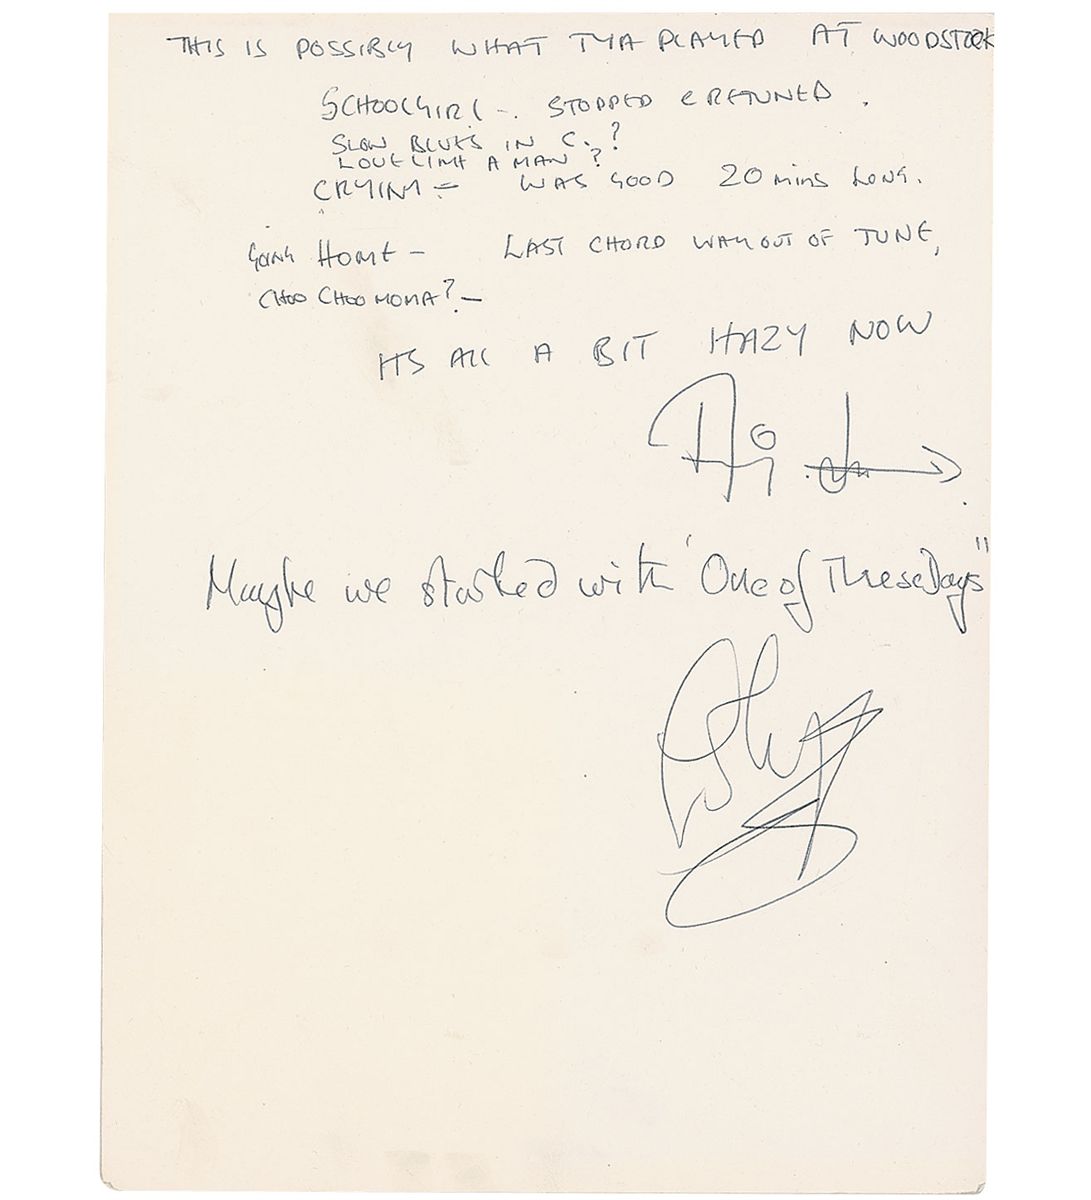 THIS IS POSSIBLY WHAT TYA PLAYED AT WOODSTOCK
SCHOOLGIRL - STOPPED & RETUNED.
SLOW BLUES IN C.?
LOVE LIKE A MAN?
CRYIN = WAS GOOD 20 mins LONG.
GOING HOME - LAST CHORD WAY OUT OF TUNE,
CHOO CHOO MOMA? -
ITS ALL A BIT HAZY NOW
Maybe we started with 'One of These Days"